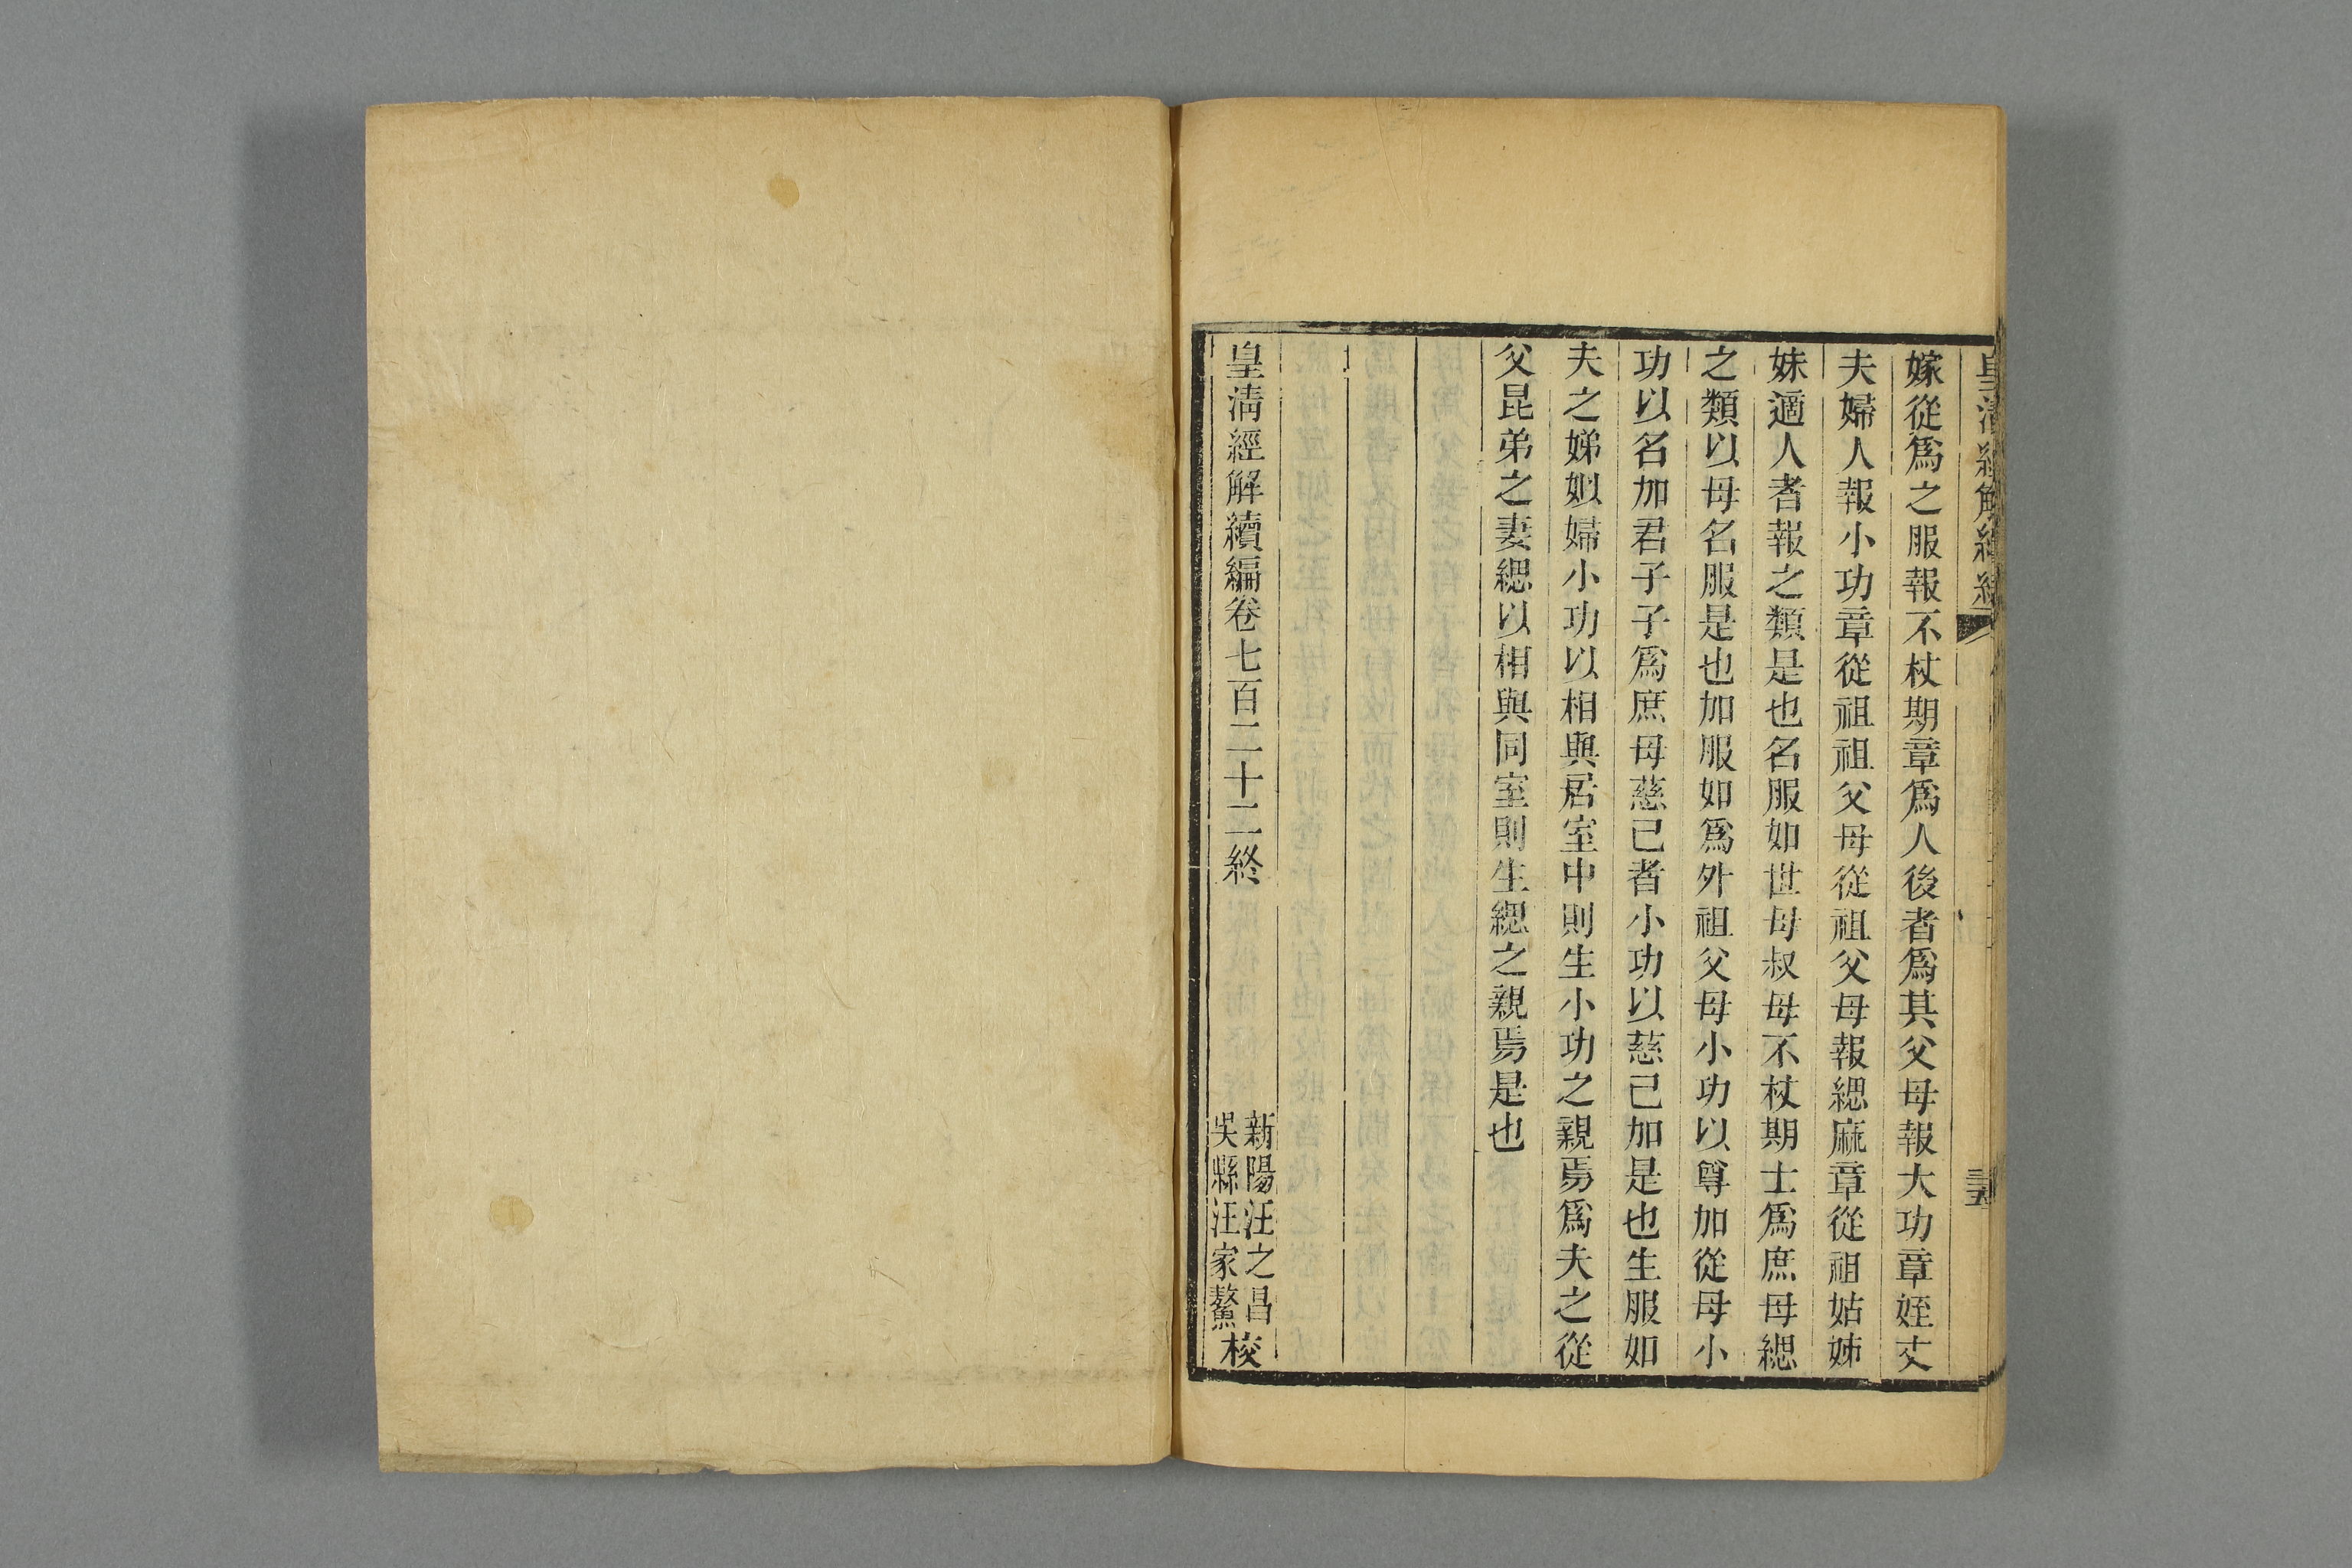 嫁從爲之服報不杖期章爲人後者爲其父母報大功章姪丈
夫婦人報小功章從祖祖父母從祖父母報緦麻章從祖姑姊
妹適人者報之類是也名服如世母叔母不杖期士爲庶母緦
之類以母名服是也加服如爲外祖父母小功以尊加從母小
功以名加君子子爲庶母慈己者小功以慈己加是也生服如
夫之娣姒婦小功以相與居室中則生小功之親焉爲夫之從
父昆弟之妻緦以相與同室則生緦之親焉是也
皇淸經解續編卷七百二十二終
新陽汪之昌
吳縣汪家鼇
校